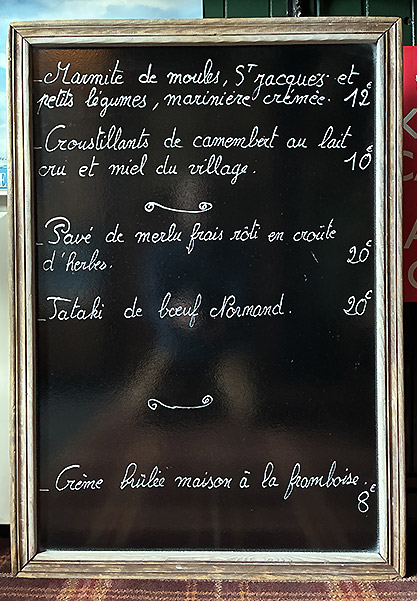 _Marmite de moules, St Jacques et
petits légumes, marinière crémée. 12€
_Croustillants de camembert au lait
cru et miel du village. 10€
_Pavé de merlu frais rôti en croûte
d'herbes. 20€
_Tataki de bœuf Normand. 20€
_Crème brûlée maison à la framboise.
8€